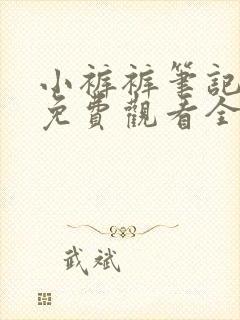 小裤裤筆記
免費觀看全
武斌